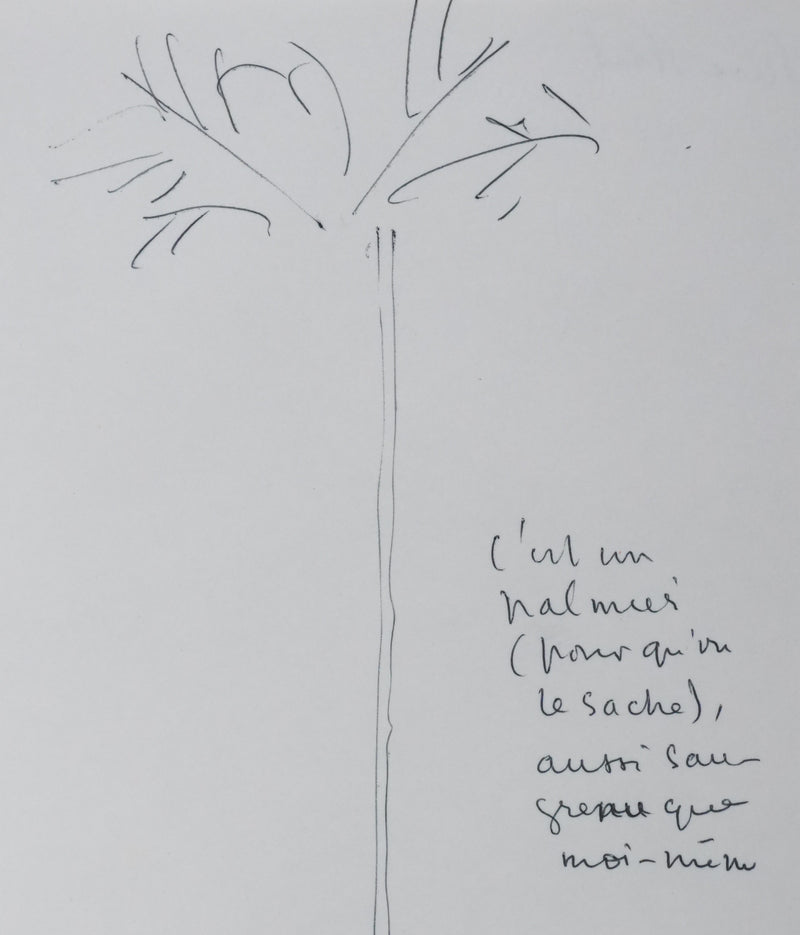 C'est un
palmier
(pour qu'on
le sache),
aussi sau-
grenu que
moi-même